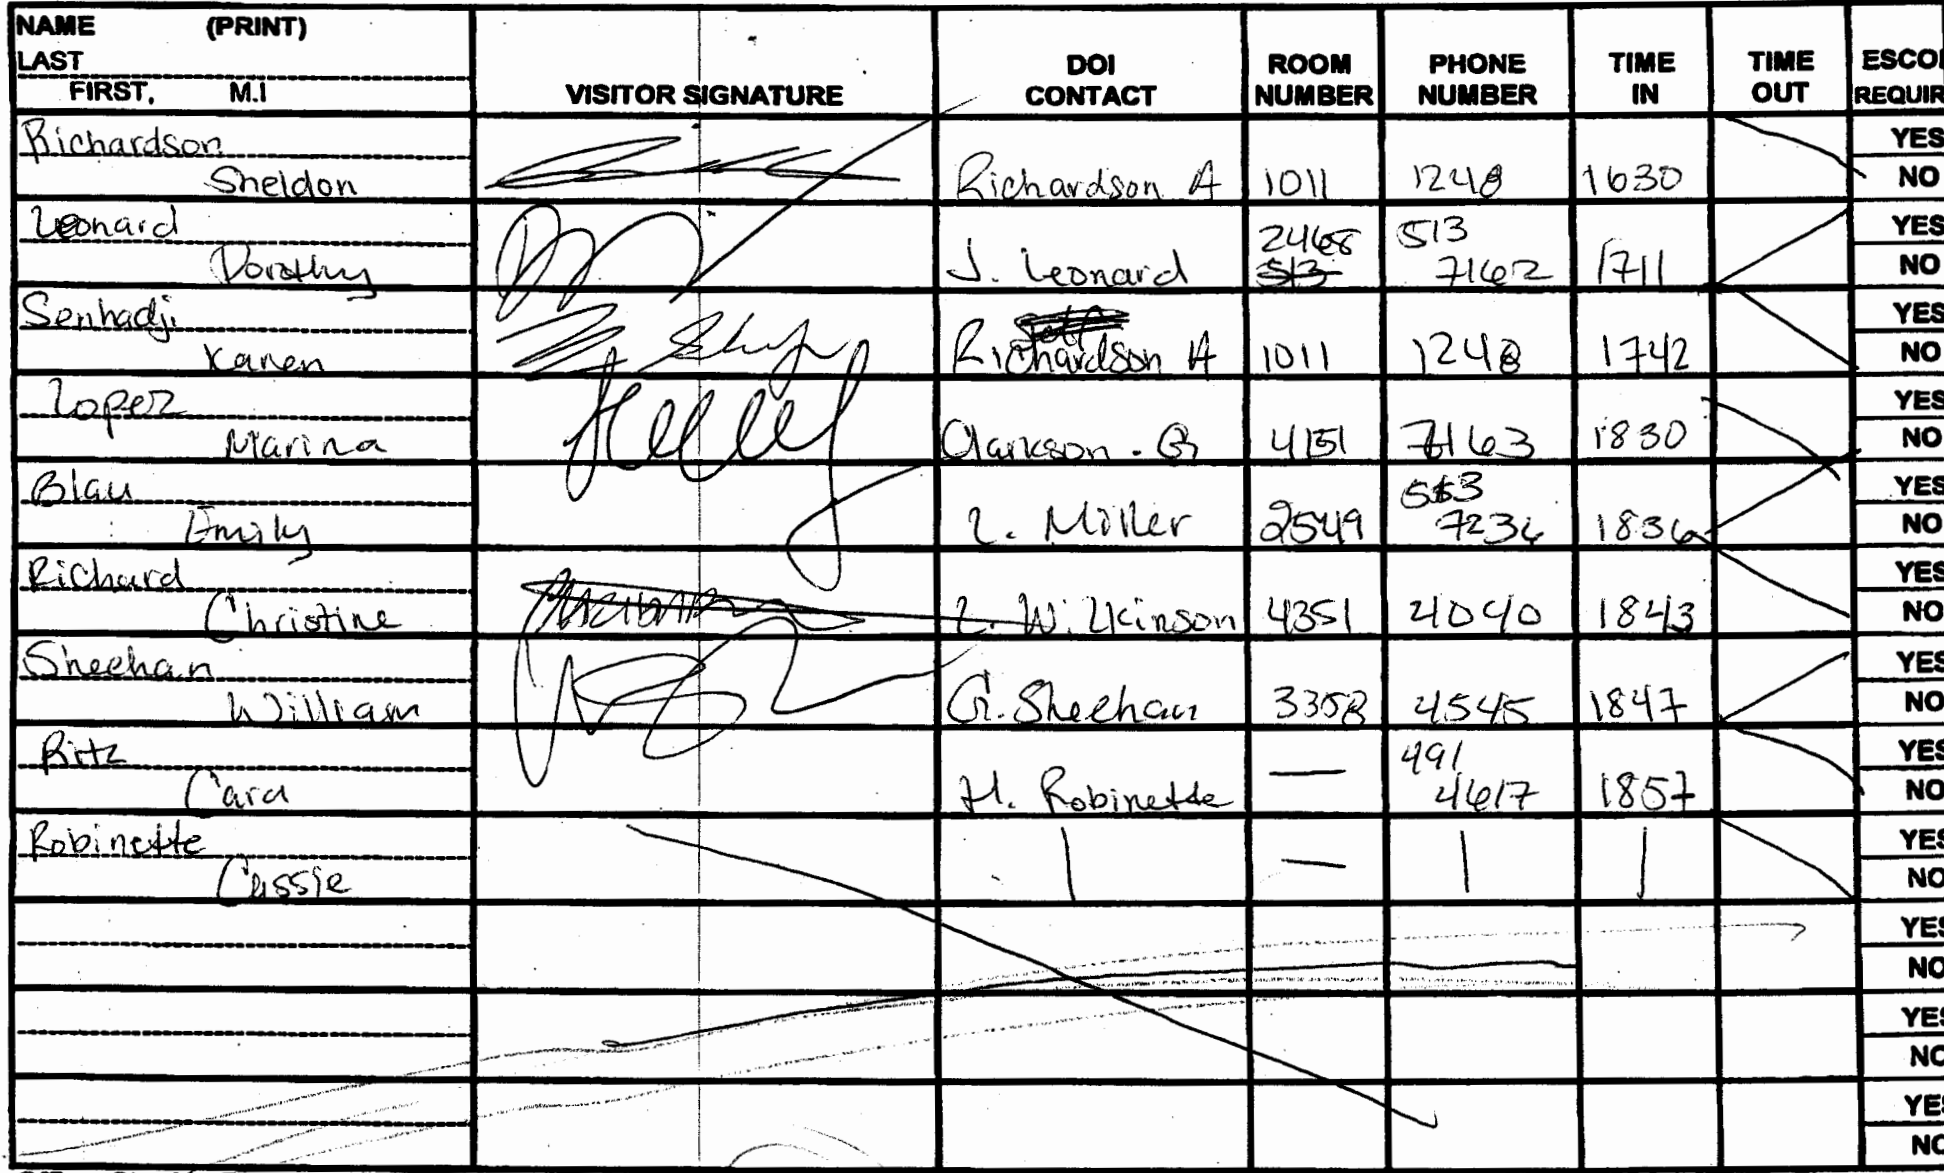 NAME (PRINT)
LAST
FIRST, M.I
VISITOR SIGNATURE
DOI CONTACT
ROOM NUMBER
PHONE NUMBER
TIME IN
TIME OUT
ESCO
REQUIR
Richardson
Sheldon Richardson A 1011 1248 1630
YES
NO
Leonard 2468 513
Dorothy J. Leonard 513 7162 1711
YES
NO
Senhadji
Karen Richardson A 1011 1248 1742
YES
NO
Lopez
Marina Clarkson . G 4151 7163 1830
YES
NO
Blau 513
Emily L. Miller 2549 7236 1836
YES
NO
Richard
Christine L. Wilkinson 4351 4040 1843
YES
NO
Sheehan
William G. Sheehan 3358 4545 1847
YES
NO
Ritz 491
Cara H. Robinette — 4617 1857
YES
NO
Robinette
Cassie | — | |
YES
NO
YES
NO
YES
NO
YES
NO